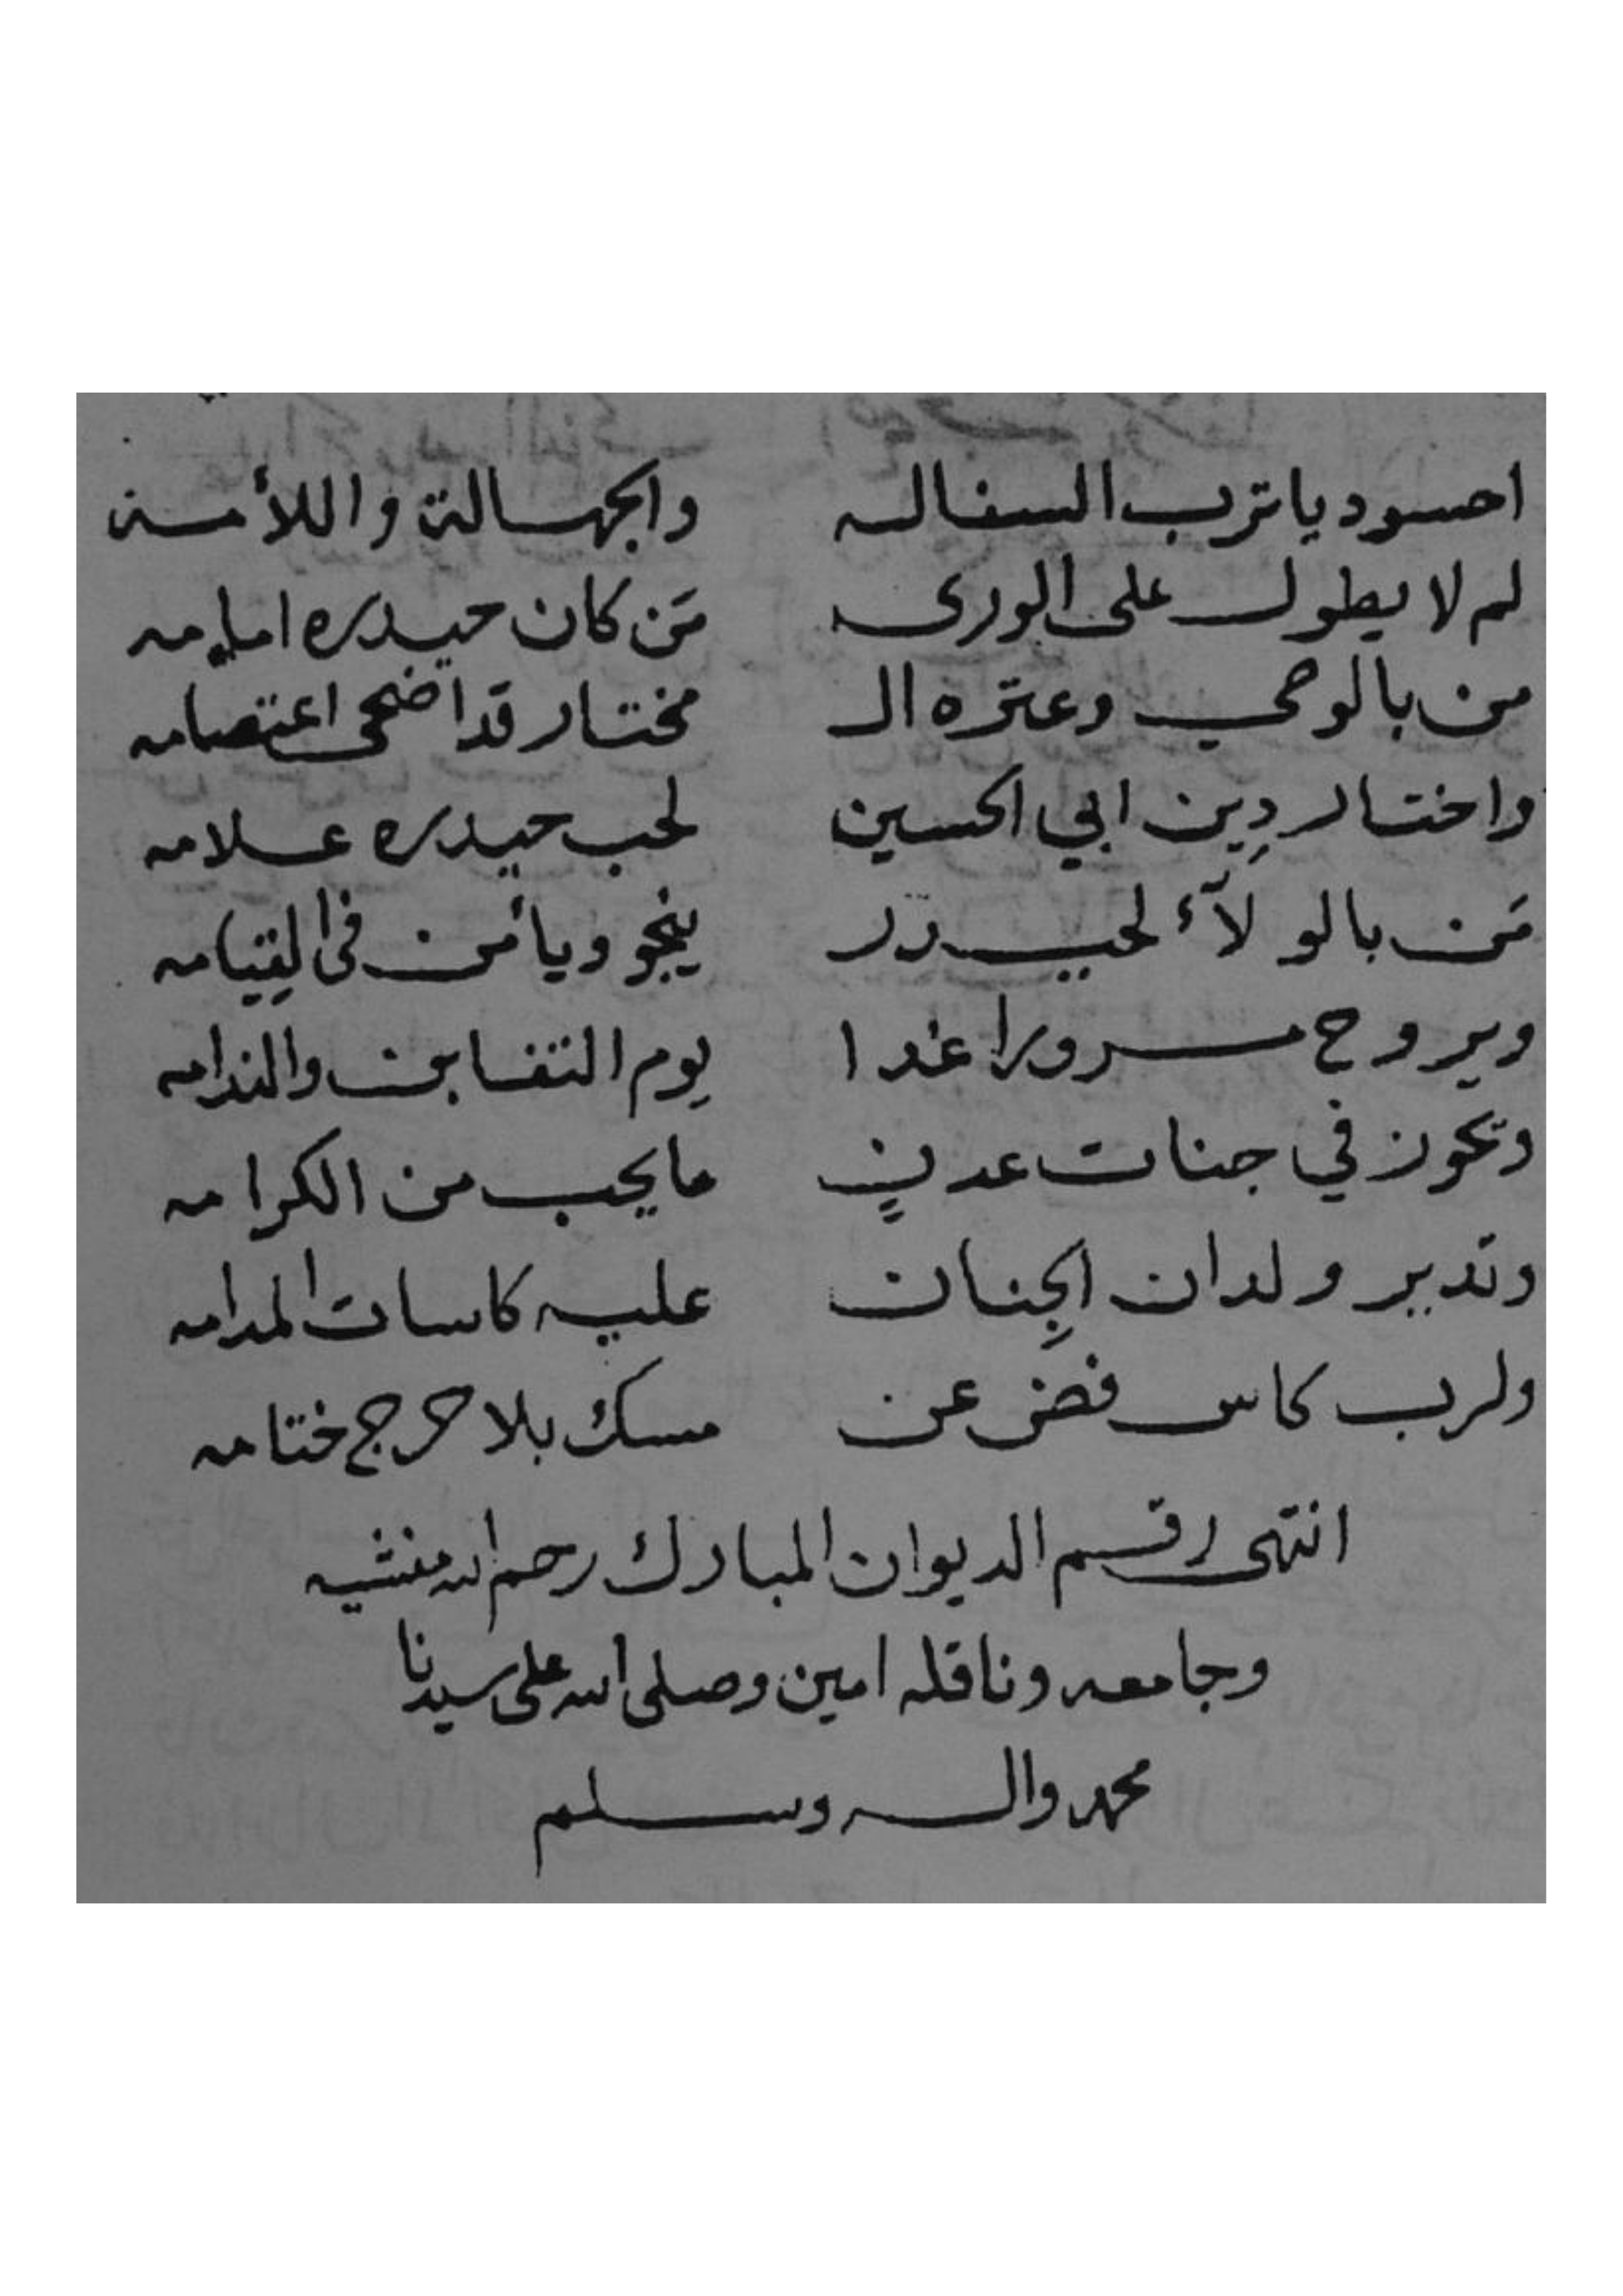 احسود ياترب السفاله والجهالة واللأمة
لم لا يطول على الورى مَن كان حيدره امامه
من بالوصي وعتره الـ مختار قد اضحى اعتصامه
واختار دِين ابي الحسين لحب حيدره علامه
مَن بالولآء لحيدر ينجو ويأمن في القِيامه
ويروح مسرورا غدا يوم التغابن والندامه
وتحوز في جنات عدنٍ ما يحب من الكرامه
وتدير ولدان الجِنان عليه كاسات المدامه
ولرب كاس فض عن مسك بلا حرج ختامه
انتهى رقم الديوان المبارك رحم الله منشيه
وجامعه وناقله امين وصلى الله على سيدنا
محمد واله وسلم